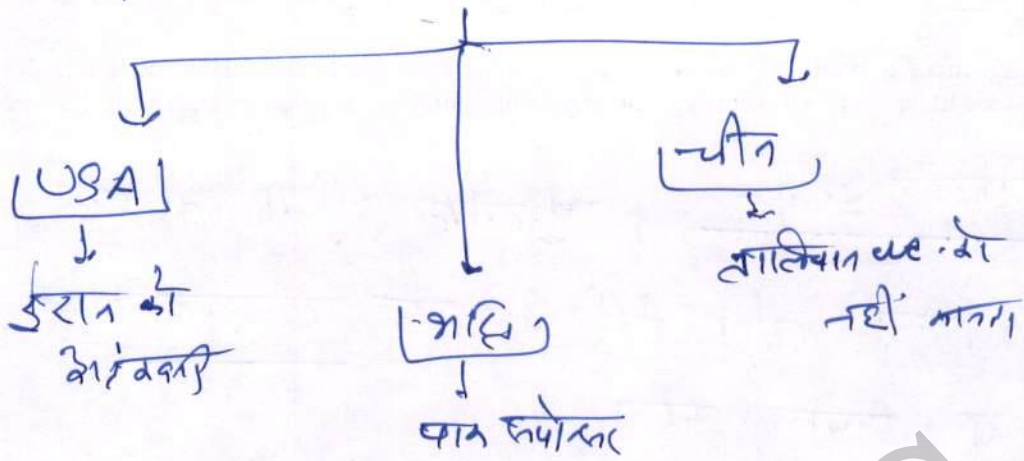 USA
ईरान को
आतंकवादी
भारत
पाक स्पोन्सर
चीन
तालिबान को
नहीं मानता